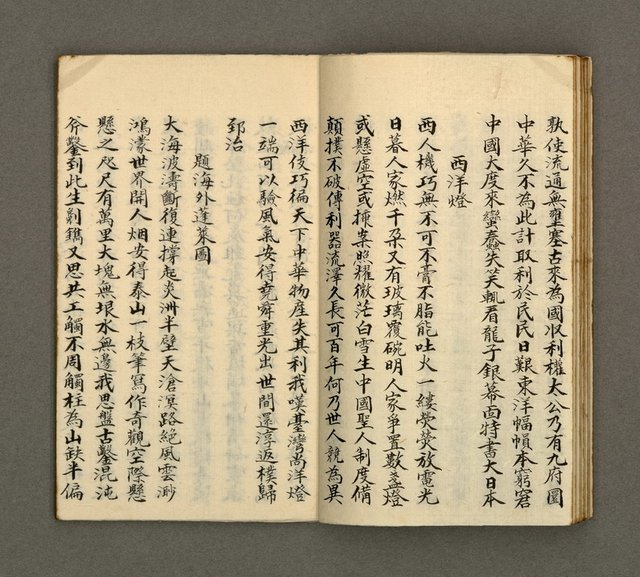 孰使流通無壅塞古來為國収利權太公乃有九府圜
中華久不為此計取利於民民日艱東洋幅幀本窮窘
中國大度來蠻蠢失笑軏看龍子銀幕面特書大日本
西洋燈
西人機巧無不可不膏不脂能吐火一縷熒熒放電光
日暮人家燃千朶又有玻璃覆碗明人家爭置數盞燈
或懸虛空或揀案照耀微茫白雪生中國聖人制度備
顛撲不破傳利器流澤久長可百年何乃世人競為異
西洋伎巧徧天下中華物産失其利我嘆臺灣尚洋燈
一端可以驗風氣安得堯舜重光出世間還淳返樸歸
郅治
題海外蓬萊圖
大海波濤斷復連撐起炎洲半壁天滄溟路絕風雲渺
鴻濛世界開人烟安得泰山一枝筆寫作奇觀空際懸
懸之咫尺有萬里大塊無垠水無邊我思盤古鑿混沌
斧鑿到此生剜鐫又思共工觸不周觸柱為山缺半偏